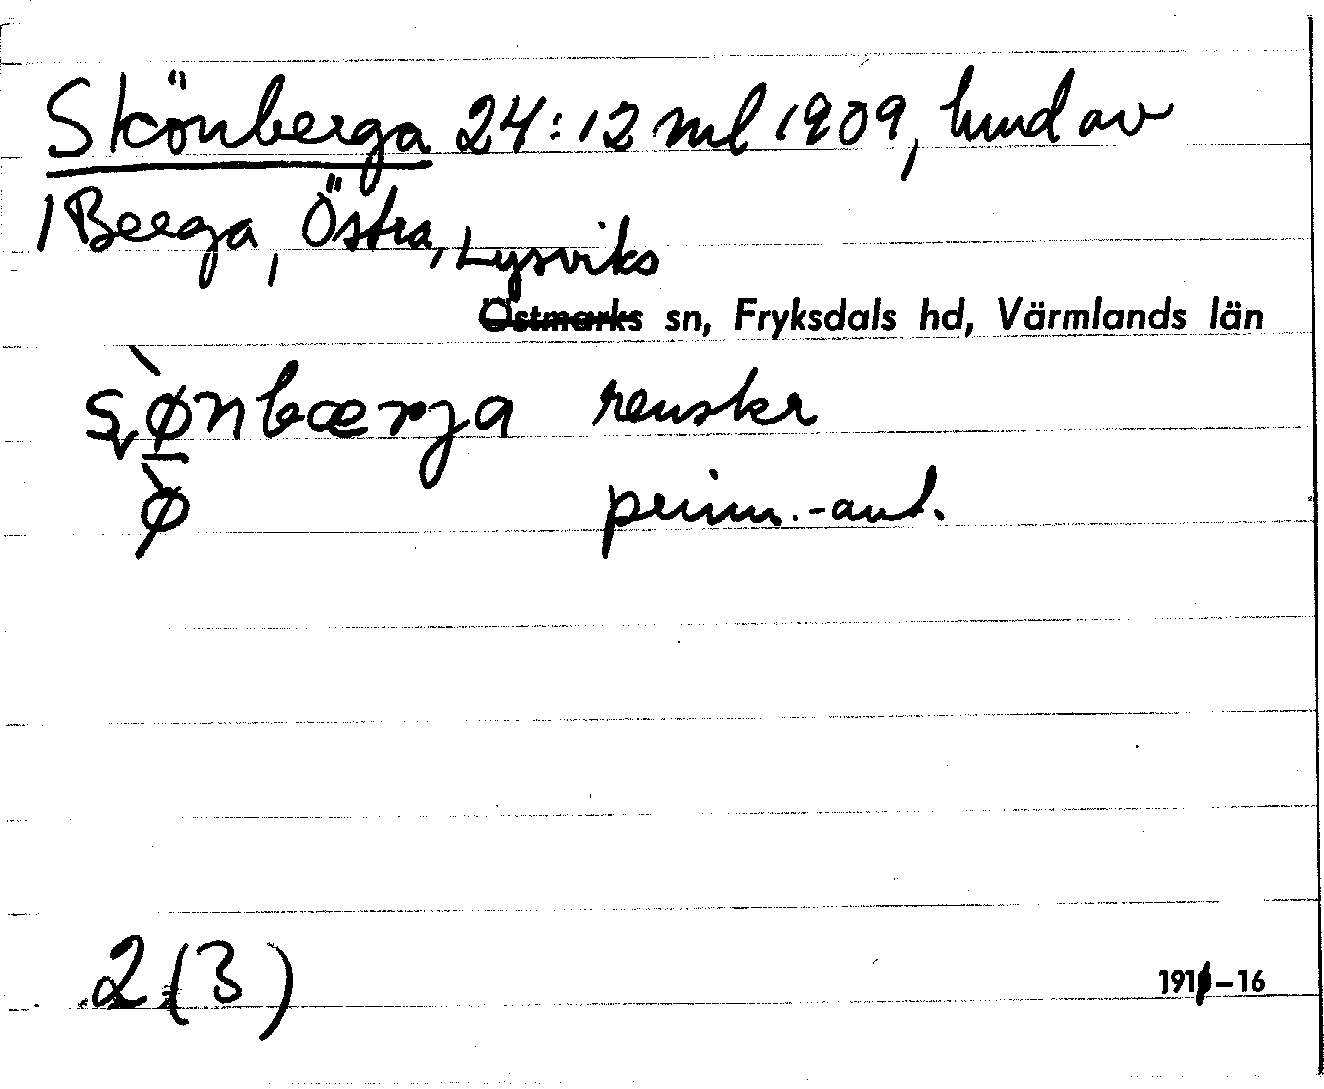 Skönberga 24:12 ml 1909, hmd av
1 Berga, Östra, Lysviks
Östmarks sn, Fryksdals hd, Värmlands län
ʂø̀nbærja renskr
ø̀ prim.-ant.
2 (3)
191 -16